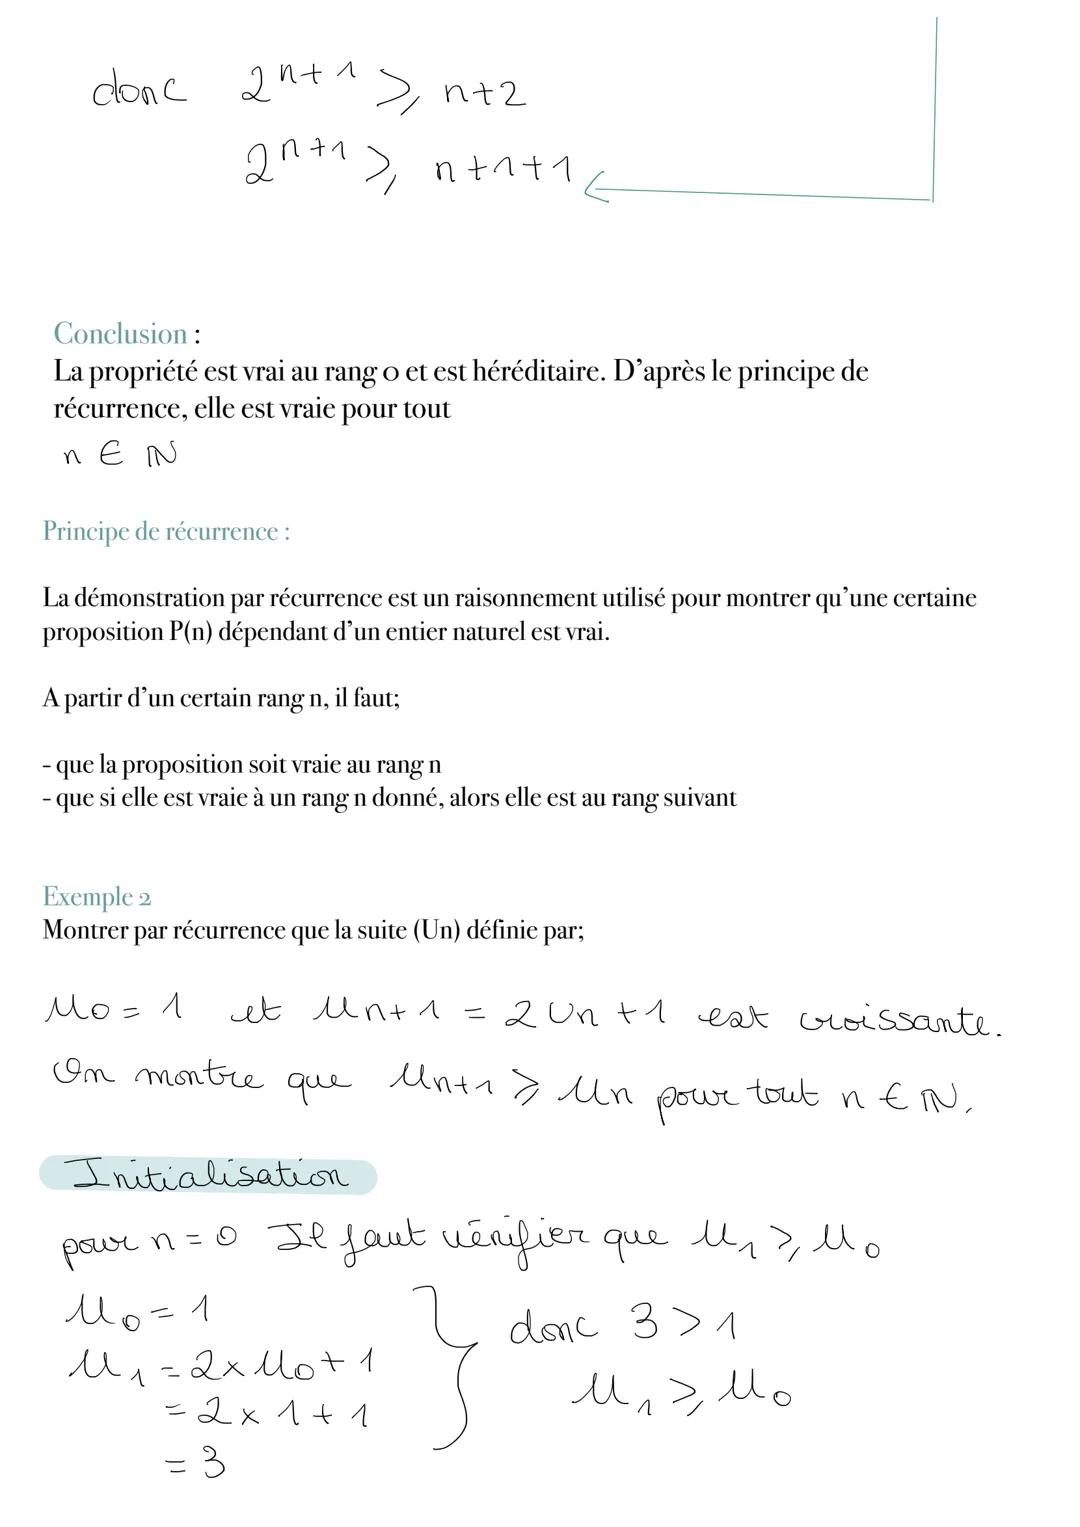 donc 2^{n+1} ⩾ n+2
2^{n+1} ⩾ n+1+1
Conclusion :
La propriété est vrai au rang 0 et est héréditaire. D'après le principe de
récurrence, elle est vraie pour tout
n ∈ ℕ
Principe de récurrence :
La démonstration par récurrence est un raisonnement utilisé pour montrer qu'une certaine
proposition P(n) dépendant d'un entier naturel est vrai.
A partir d'un certain rang n, il faut;
- que la proposition soit vraie au rang n
- que si elle est vraie à un rang n donné, alors elle est au rang suivant
Exemple 2
Montrer par récurrence que la suite (Un) définie par;
U0 = 1 et Un+1 = 2Un +1 est croissante.
On montre que Un+1 ⩾ Un pour tout n ∈ ℕ.
Initialisation
pour n = 0 Il faut vérifier que U₁ ⩾ U₀
U₀ = 1
donc 3 > 1
U₁ = 2 × U₀ + 1
= 2 × 1 + 1
U₁ ⩾ U₀
= 3